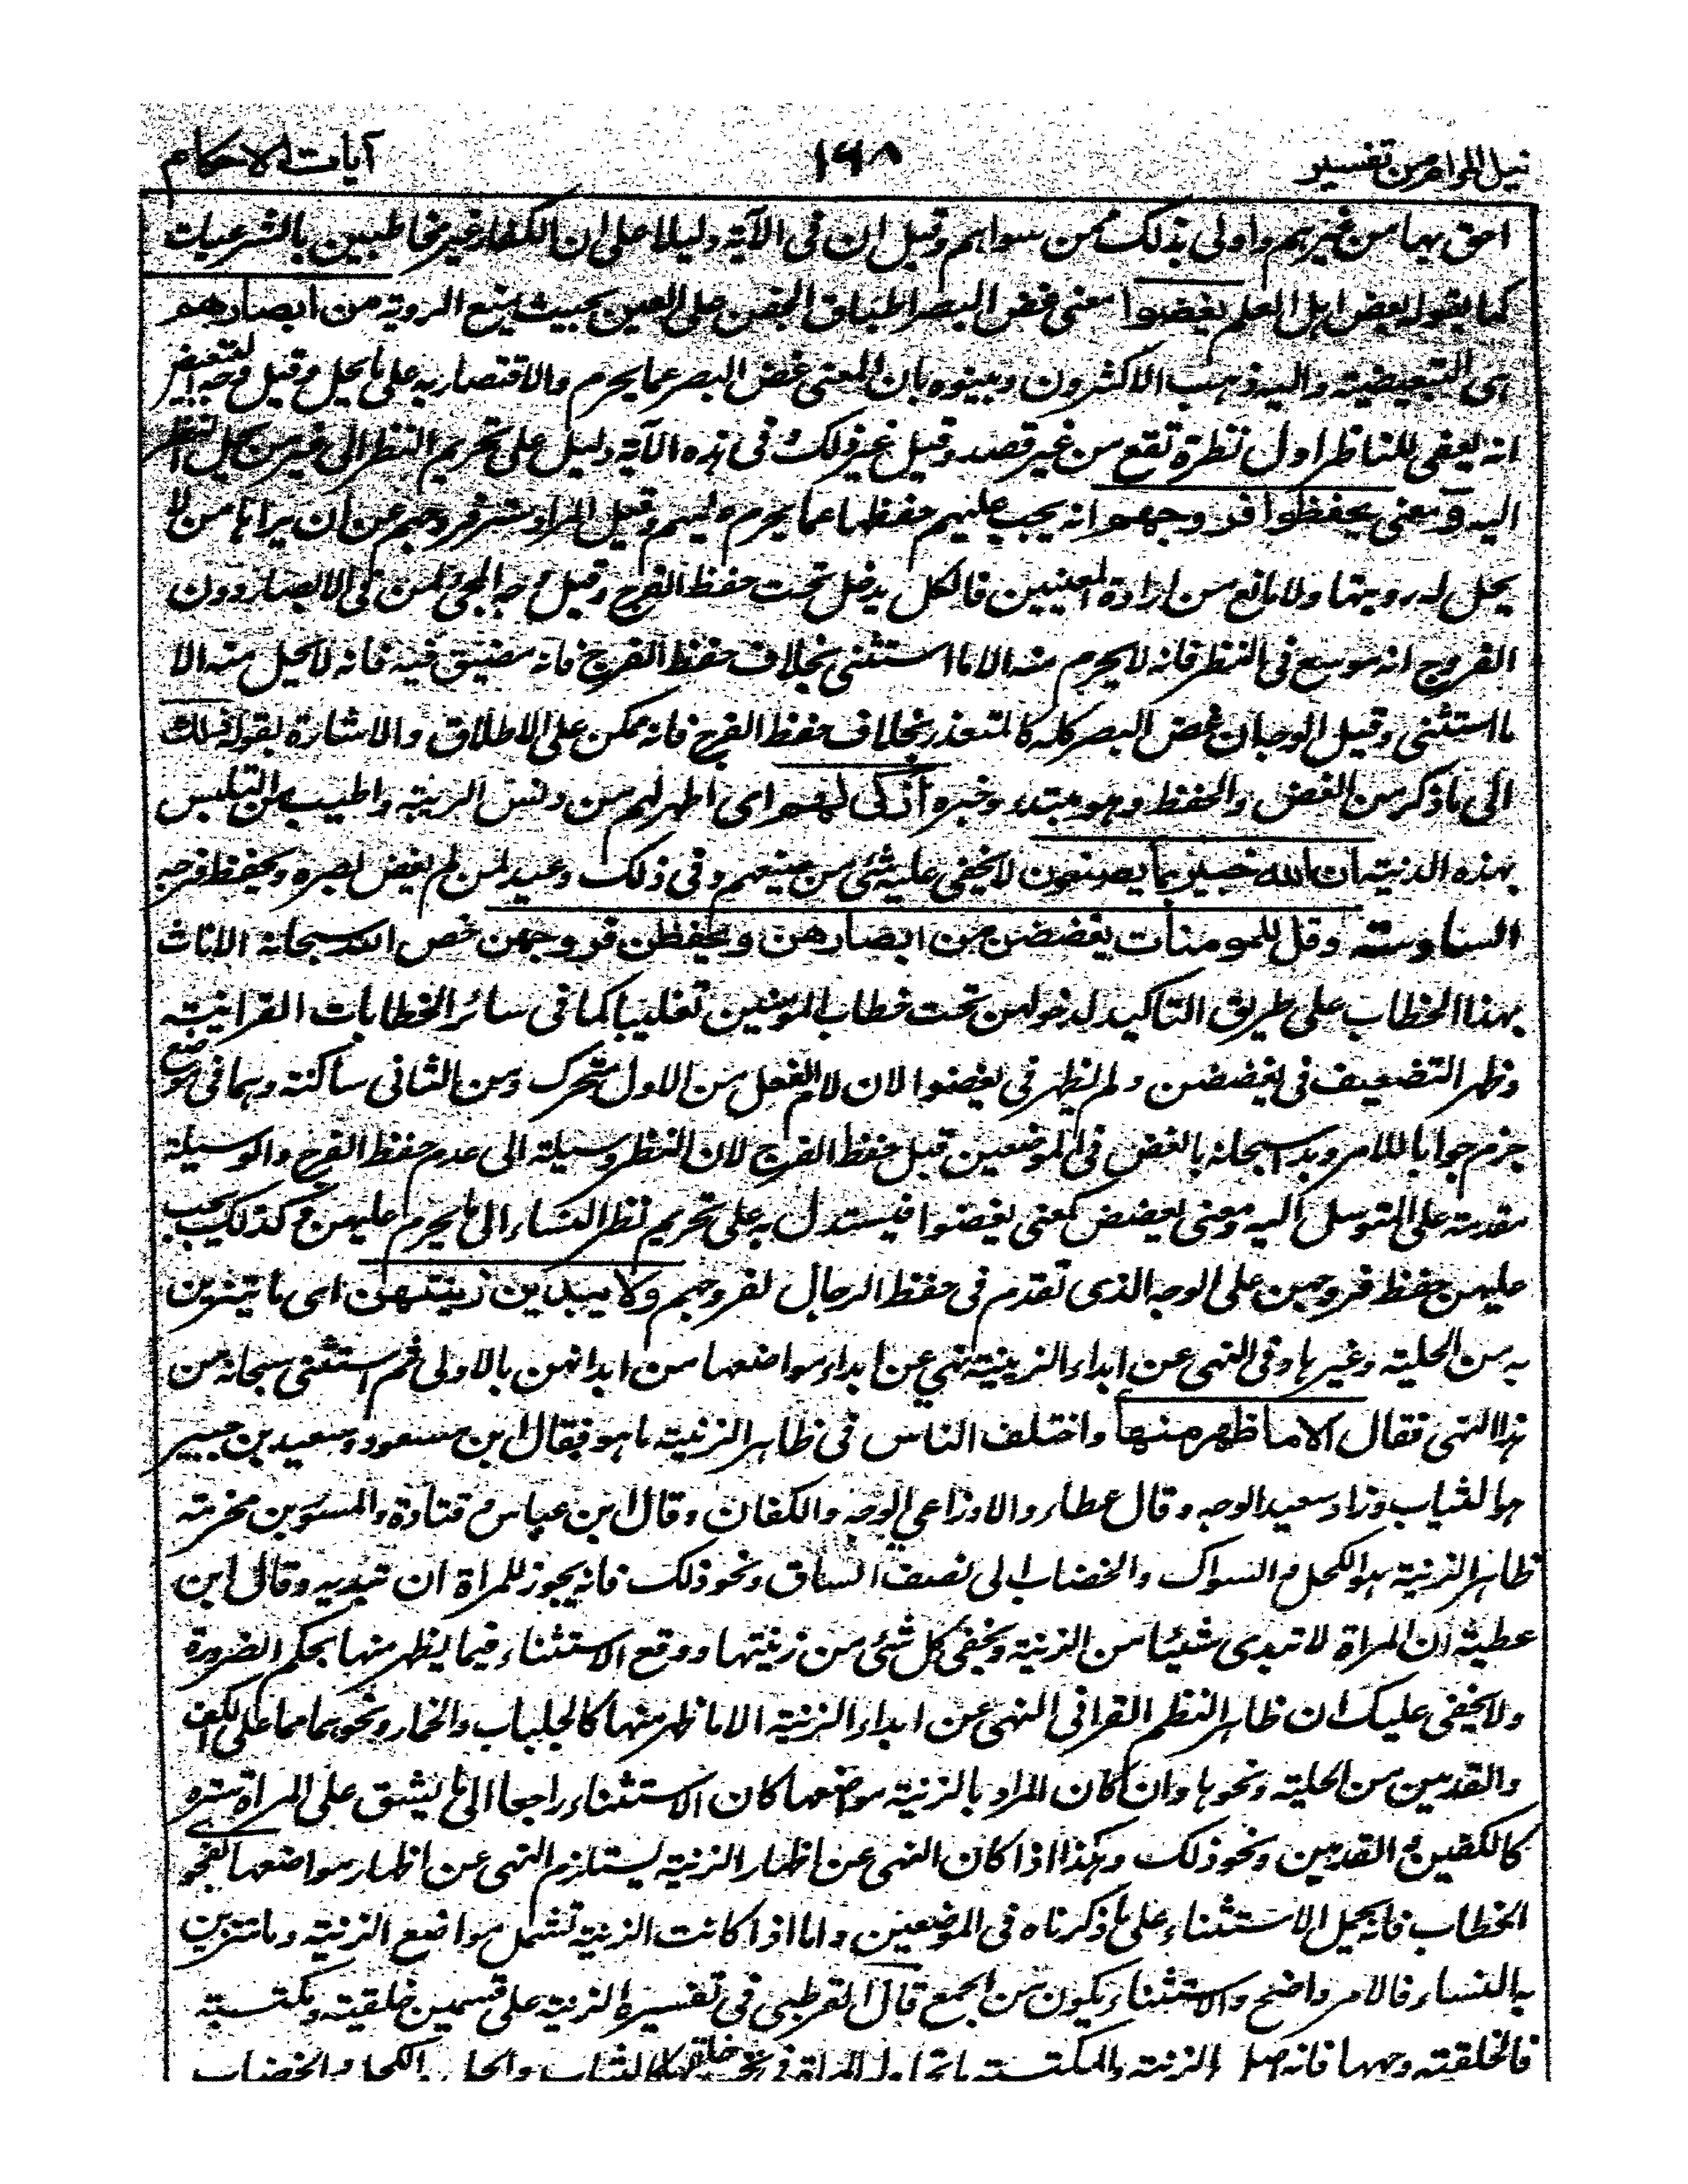 نيل المرام من تفسير ١٦٨ آيات الاحكام
احق بهما من غيرهم واولى بذلك ممن سواهم وقيل ان فى الآية دليلا على ان الكفار غير مخاطبين بالشرعيات
كما يقوله بعض اهل العلم يغضوا معنى غض البصر اطباق الجفن على العين بحيث يمنع الروية من ابصارهم
هى التبعيضية واليه ذهب الاكثرون وبينوه بان المعنى غض البصر عما يحرم والاقتصار به على ما يحل وقيل وجه التبعيض
انه يعفى للناظر اول نظرة تقع من غير قصد وقيل غير ذلك وفى هذه الآية دليل على تحريم النظر الى غير من يحل النظر
اليه ومعنى يحفظوا فروجهم انه يجب عليهم حفظها عما يحرم عليهم وقيل المراد ستر فروجهم عن ان يراها من لا
يحل له رويتها ولا مانع من ارادة المعنيين فالكل يدخل تحت حفظ الفرج وقيل وجه المجئ لمن فى الابصار دون
الفروج انه موسع فى النظر فانه لا يحرم منه الا ما استثنى بخلاف حفظ الفرج فانه مضيق فيه فانه لا يحل منه الا
ما استثنى وقيل الوجه ان غض البصر كله كالمتعذر بخلاف حفظ الفرج فانه ممكن على الاطلاق والاشارة بقوله ذلك
الى ما ذكر من الغض والحفظ وهو مبتدء وخبره ازكى لهم اى اطهر لهم من دنس الريبة واطيب من التلبس
بهذه الدنية ان الله خبير بما يصنعون لا يخفى عليه شئ من صنيعهم وفى ذلك وعيد لمن لم يغض بصره ويحفظ فرجه
السادسة وقل للمومنات يغضضن من ابصارهن ويحفظن فروجهن خص الله سبحانه الاناث
بهذا الخطاب على طريق التاكيد لدخولهن تحت خطاب المومنين تغليبا كما فى سائر الخطابات القرانية
وظهر التضعيف فى يغضضن ولم يظهر فى يغضوا لان لام الفعل من الاول متحرك ومن الثانى ساكنة وهما فى موضع
جزم جوابا للامر وبدا سبحانه بالغض فى الموضعين قبل حفظ الفرج لان النظر وسيلة الى عدم حفظ الفرج والوسيلة
مقدمة على المتوسل اليه ومعنى يغضضن كمعنى يغضوا فيستدل به على تحريم نظر النساء الى ما يحرم عليهن وكذلك يجب
عليهن حفظ فروجهن على الوجه الذى تقدم فى حفظ الرجال لفروجهم ولا يبدين زينتهن اى ما يتزين
به من الحلية وغيرها وفى النهى عن ابداء الزينة نهى عن ابداء مواضعها من ابدانهن بالاولى ثم استثنى سبحانه من
هذا النهى فقال الا ما ظهر منها واختلف الناس فى ظاهر الزينة ما هو فقال ابن مسعود وسعيد بن جبير
هو الثياب وزاد سعيد الوجه وقال عطاء والاوزاعى الوجه والكفان وقال ابن عباس وقتادة والمسور بن مخرمة
ظاهر الزينة هو الكحل والسواك والخضاب الى نصف الساق ونحو ذلك فانه يجوز للمراة ان تبديه وقال ابن
عطية ان المراة لا تبدى شيئا من الزينة وتخفى كل شئ من زينتها ووقع الاستثناء فيما يظهر منها بحكم الضرورة
ولا يخفى عليك ان ظاهر النظم القرانى النهى عن ابداء الزينة الا ما ظهر منها كالجلباب والخمار ونحوهما مما على الكف
والقدمين من الحلية ونحوها وان كان المراد بالزينة مواضعها كان الاستثناء راجعا الى ما يشق على المراة ستره
كالكفين والقدمين ونحو ذلك وهكذا اذا كان النهى عن اظهار الزينة يستلزم النهى عن اظهار مواضعها بفحوى
الخطاب فانه يحمل الاستثناء على ما ذكرناه فى الموضعين واما اذا كانت الزينة تشمل مواضع الزينة وما تتزين
به النساء فالامر واضح والاستثناء يكون من الجميع قال القرطبى فى تفسيره الزينة على قسمين خلقية ومكتسبة
فالخلقية وجهها فانه اصل الزينة والمكتسبة ما تحاوله المراة فى خلقها كالثياب والحلى والكحل والخضاب